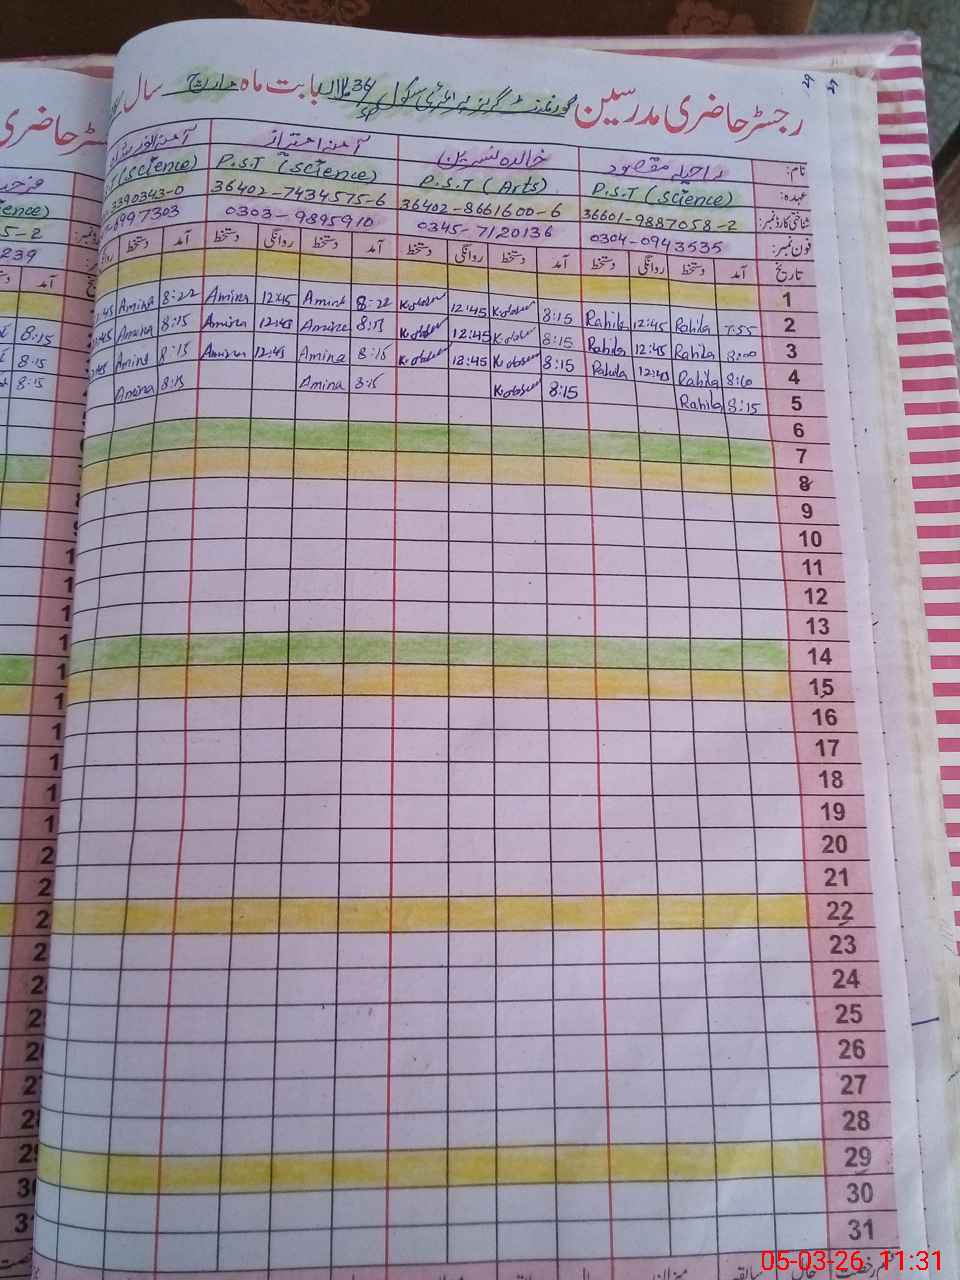 رجسٹر حاضری مدرسین گورنمنٹ گرلز پرائمری سکول 34 SP بابت ماہ مارچ سال
نام: راحیلہ مقصود خالدہ نسرین آمنہ احتراز
عہدہ: P.S.T (science) P.S.T (Arts) P.S.T (science) (science)
شناختی کارڈ نمبر: 36601-9887058-2 36402-8661600-6 36402-7434575-6 3390343-0
فون نمبر: 0304-0943535 0345-7120136 0303-9895910 6997303
تاریخ آمد دستخط روانگی دستخط آمد دستخط روانگی دستخط آمد دستخط روانگی دستخط آمد دستخط
1
2 7:55 Rahila 12:45 Rahila 8:15 12:45 8:22 Amina 12:45 Amina 8:22 Amina
3 8:00 Rahila 12:45 Rahila 8:15 12:45 8:15 Amina 12:45 Amina 8:15 Amina
4 8:10 Rahila 12:45 Rahila 8:15 12:45 8:15 Amina 12:45 Amina 8:15 Amina
5 8:15 Rahila 8:15 8:15 Amina 8:15 Amina
6
7
8
9
10
11
12
13
14
15
16
17
18
19
20
21
22
23
24
25
26
27
28
29
30
31
239
8:15
8:15
8:15
05-03-26 11:31